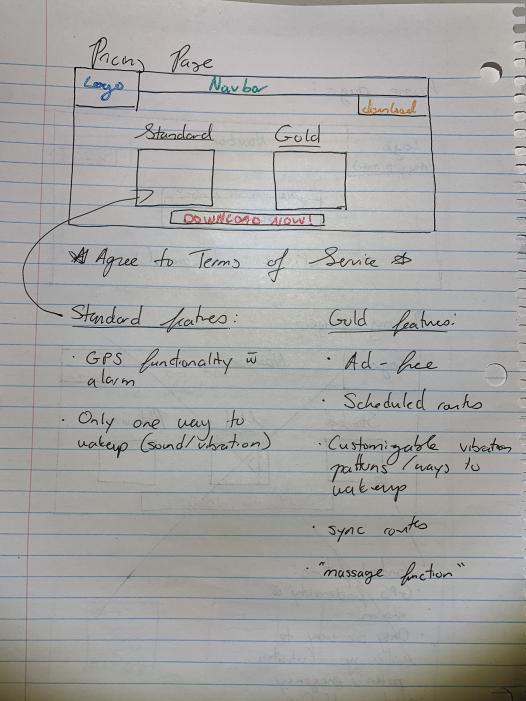 Pricing Page
Logo
Navbar
download
Standard
Gold
DOWNLOAD NOW!
* Agree to Terms of Service *
Standard features:
· GPS functionality w̅
alarm
· Only one way to
wakeup (sound/vibration)
Gold features:
· Ad-free
· Scheduled routes
· Customizable vibration
patterns/ways to
wakeup
· sync routes
· "massage function"